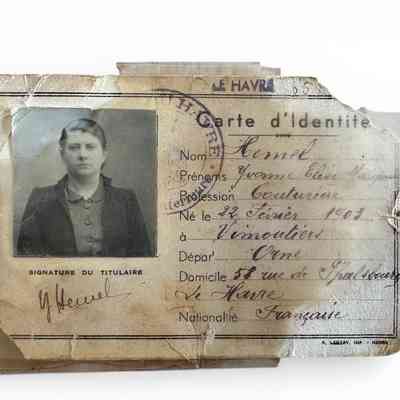 LE HAVRE
Carte d'Identité
Nom Hemel
Prénoms Yvonne Elise
Profession Couturière
Né le 22 Février 1903
à Vimoutiers
Dépar' Orne
Domicile 58 rue de
Le Havre
Nationalité Française
SIGNATURE DU TITULAIRE
Y Hemel